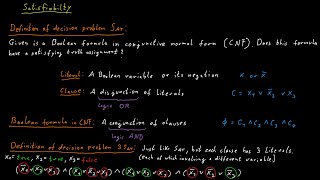 Satisfiability
Definition of decision problem SAT:
Given is a Boolean formula in conjunctive normal form (CNF). Does this formula
have a satisfying truth assignment?
Literal: A Boolean variable or its negation x or x̅
Clause: A disjunction of literals C = x₁ ∨ x̅₂ ∨ x₃
logic OR
Boolean formula in CNF: A conjunction of clauses ϕ = C₁ ∧ C₂ ∧ C₃ ∧ C₄
logic AND
Definition of decision problem 3SAT: Just like SAT, but each clause has 3 literals.
x₁= true, x₂ = true, x₃ = false (each of which involving a different variable)